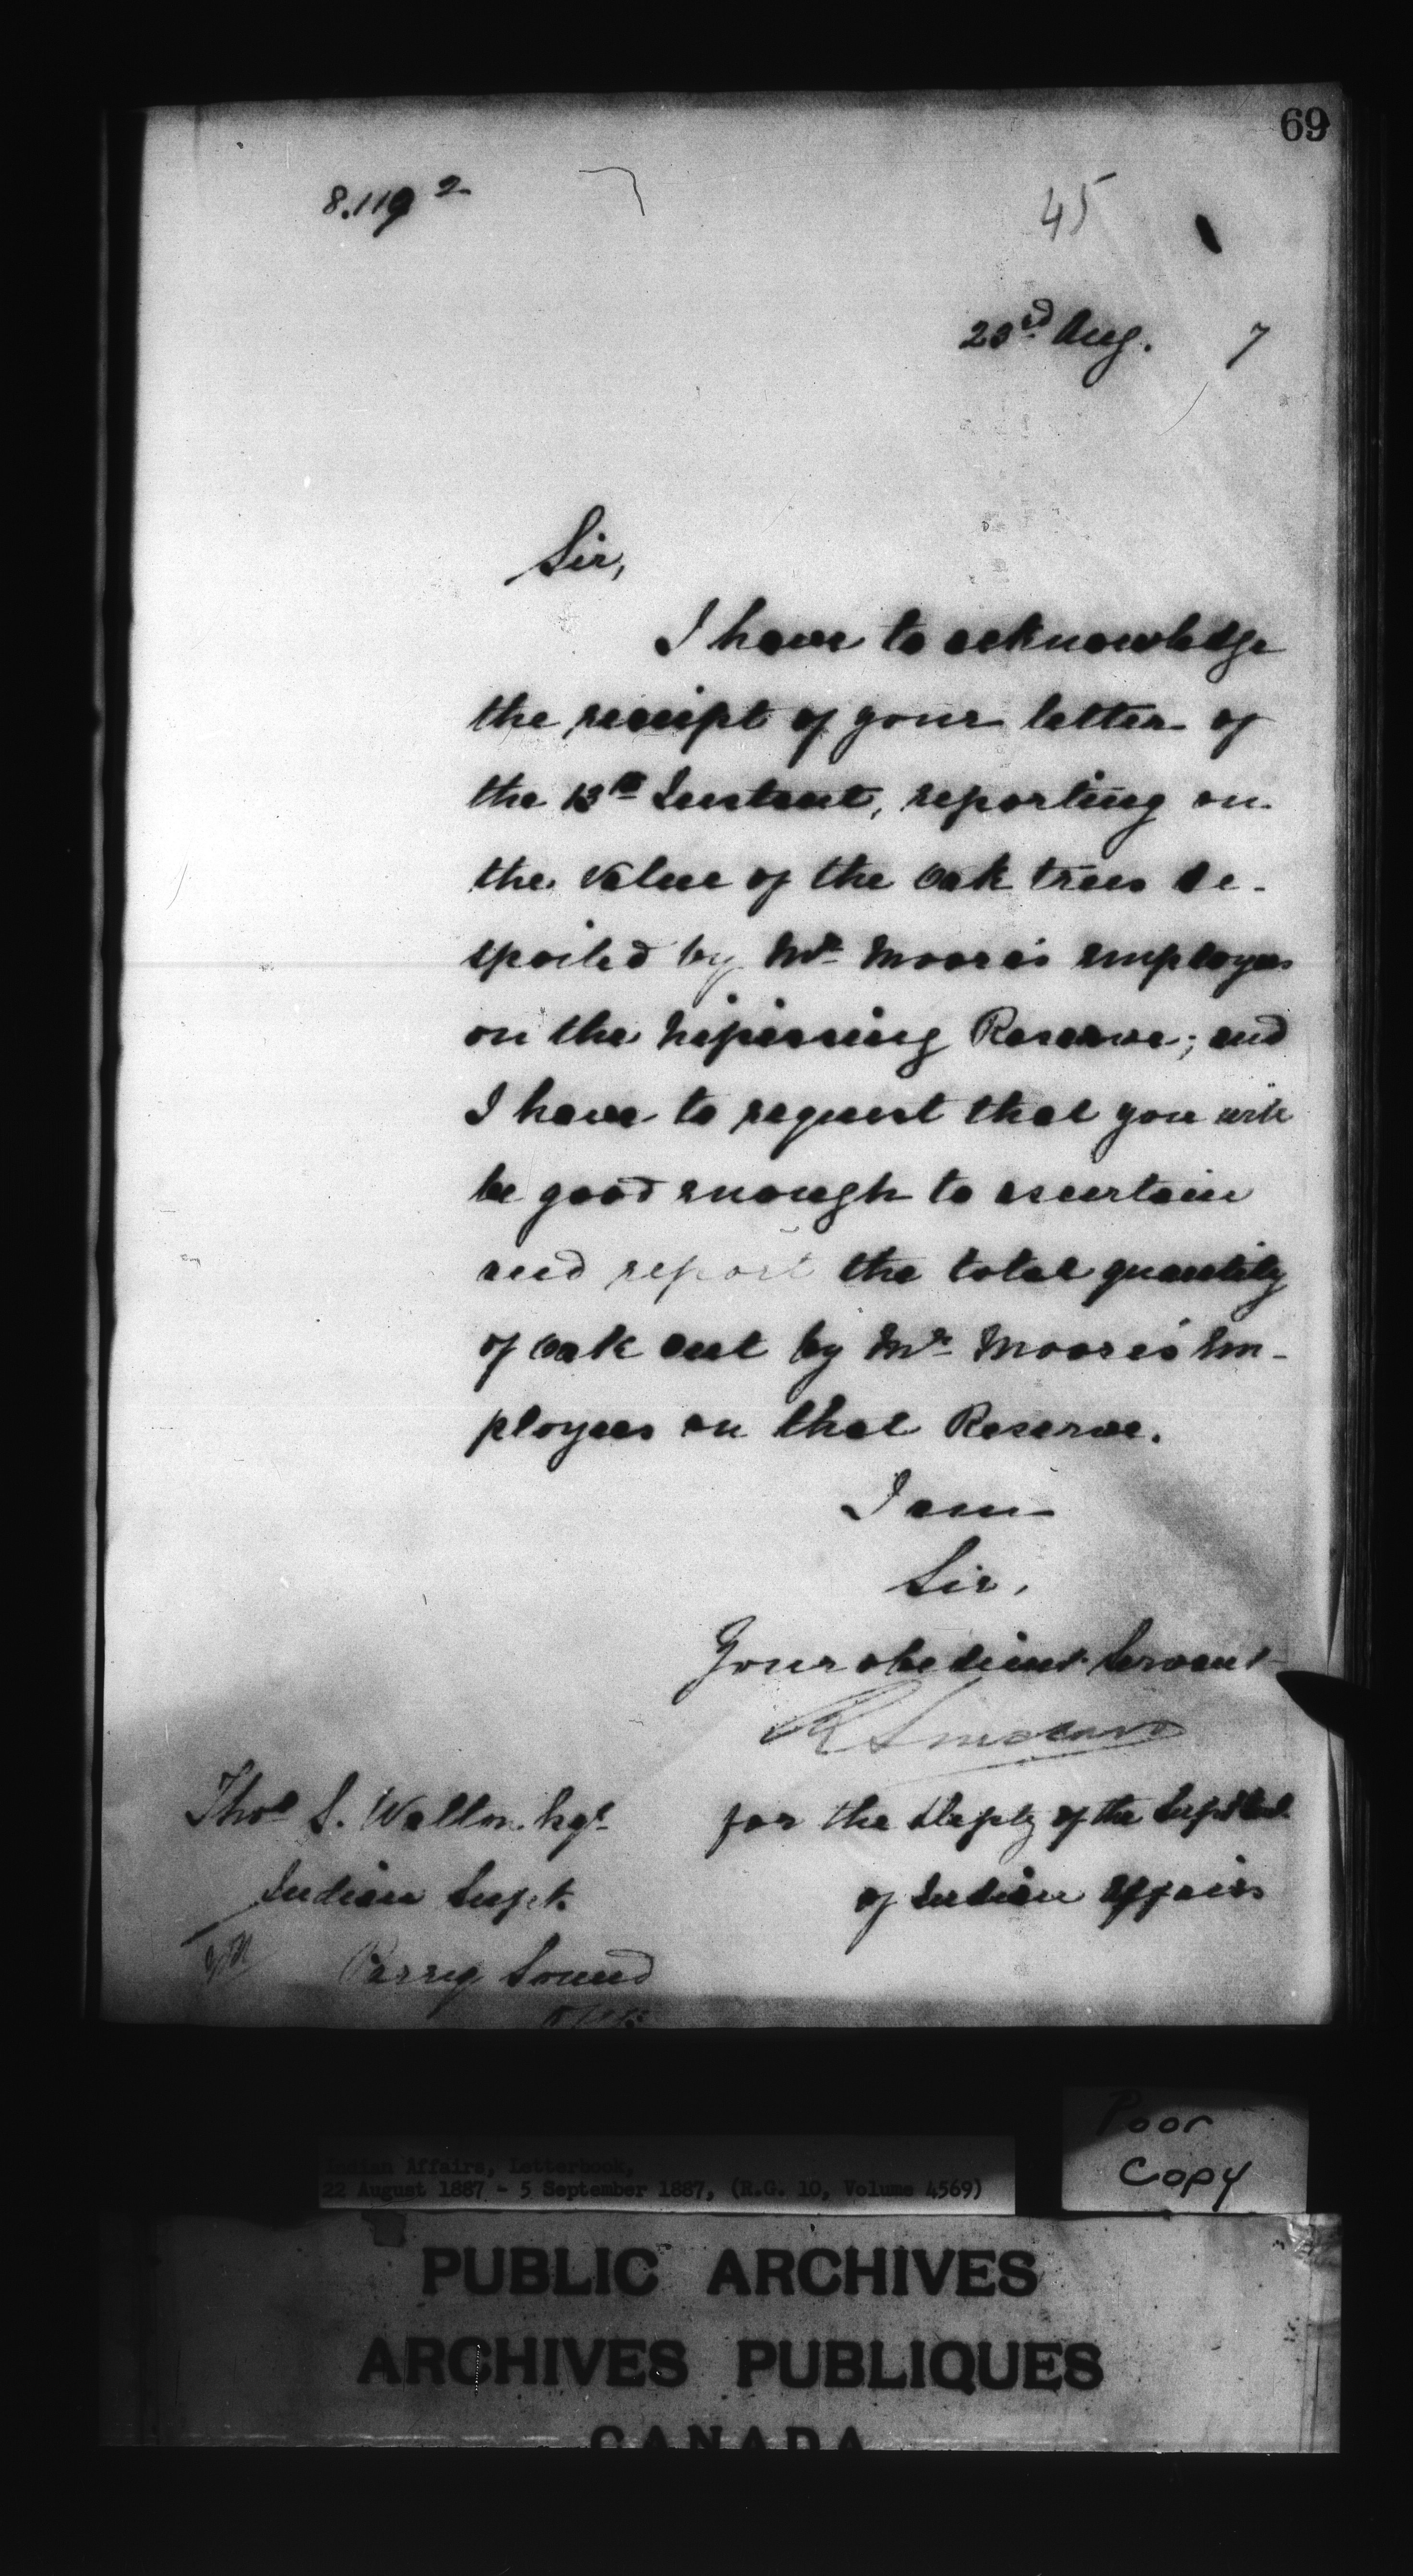 69
8.119 2
45
23rd Aug. 7
Sir,
I have to acknowledge
the receipt of your letter of
the 13th Instant, reporting on
the value of the Oak trees de-
spoiled by Mr Moore's employees
on the Nipissing Reserve; and
I have to request that you will
be good enough to ascertain
and report the total quantity
of Oak cut by Mr Moore's Em-
ployees on that Reserve.
I am
Sir,
Your obedient Servant
R Sinclair
Thos S. Walton Esqr
for the Depty of the Supt Genl
Indian Supt.
of Indian Affairs
Parry Sound
Ont.
Poor
Copy
Indian Affairs, Letterbook,
22 August 1887 - 5 September 1887, (R.G. 10, Volume 4569)
PUBLIC ARCHIVES
ARCHIVES PUBLIQUES
CANADA